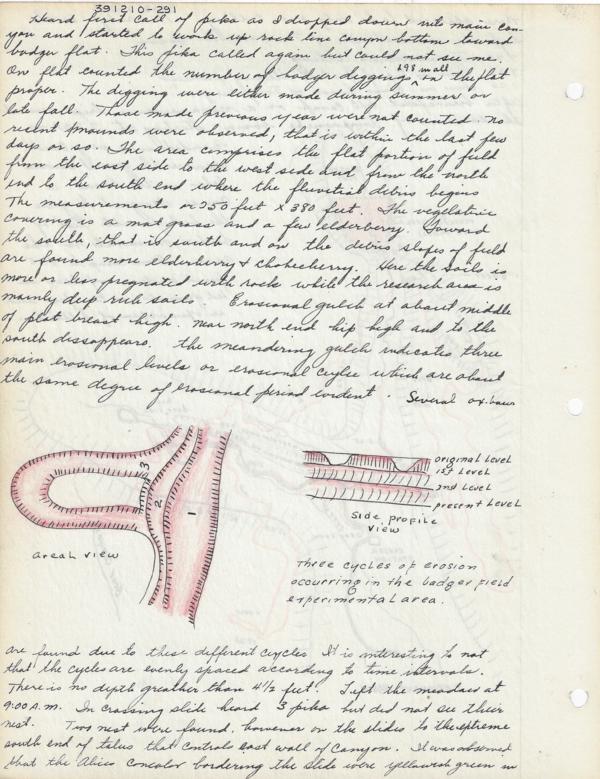 391210-291
Heard first call of pika as I dropped down into main can-
yon and started to work up rock line canyon bottom toward
badger flat. This pika called again but could not see me.
On flat counted the number of badger diggings, 298 in all in the flat
proper. The digging were either made during summer or
late fall. Those made previous year were not counted. no
recent pmounds were observed, that is within the last few
days or so. The area comprises the flat portion of field
from the east side to the west side and from the north
end to the south end where the fluvitial debris begins
The measurements or 250 feet x 380 feet. The vegetative
covering is a mat grass and a few elderberry. Toward
the south, that is south and on the debris slopes of field
are found more elderberry & chokecherry. Here the soils is
more or less pregnated with rocks while the research area is
mainly deep rich soils. Erosional gulch at about middle
of flat breast high. near north end hip high and to the
south dissappears. the meandering gulch indicates three
main erosional levels or erosional cycles which are about
the same degree of erosional period evident. Several ox-bows
3
2
1
areal view
original level
1st level
2nd level
present level
side profile
view
Three cycles of erosion
occurring in the badger field
experimental area.
are found due to these different cycles It is interesting to not
that the cycles are evenly spaced according to time intervals.
There is no depth greather than 4 1/2 feet. I left the meadows at
9:00 A.M. In crossing slide heard 3 pika but did not see their
nest. Two nest were found, however on the slides to the extreme
south end of talus that controls east wall of Canyon. It was observed
that the Abies concolor bordering the slide were yellowish green in